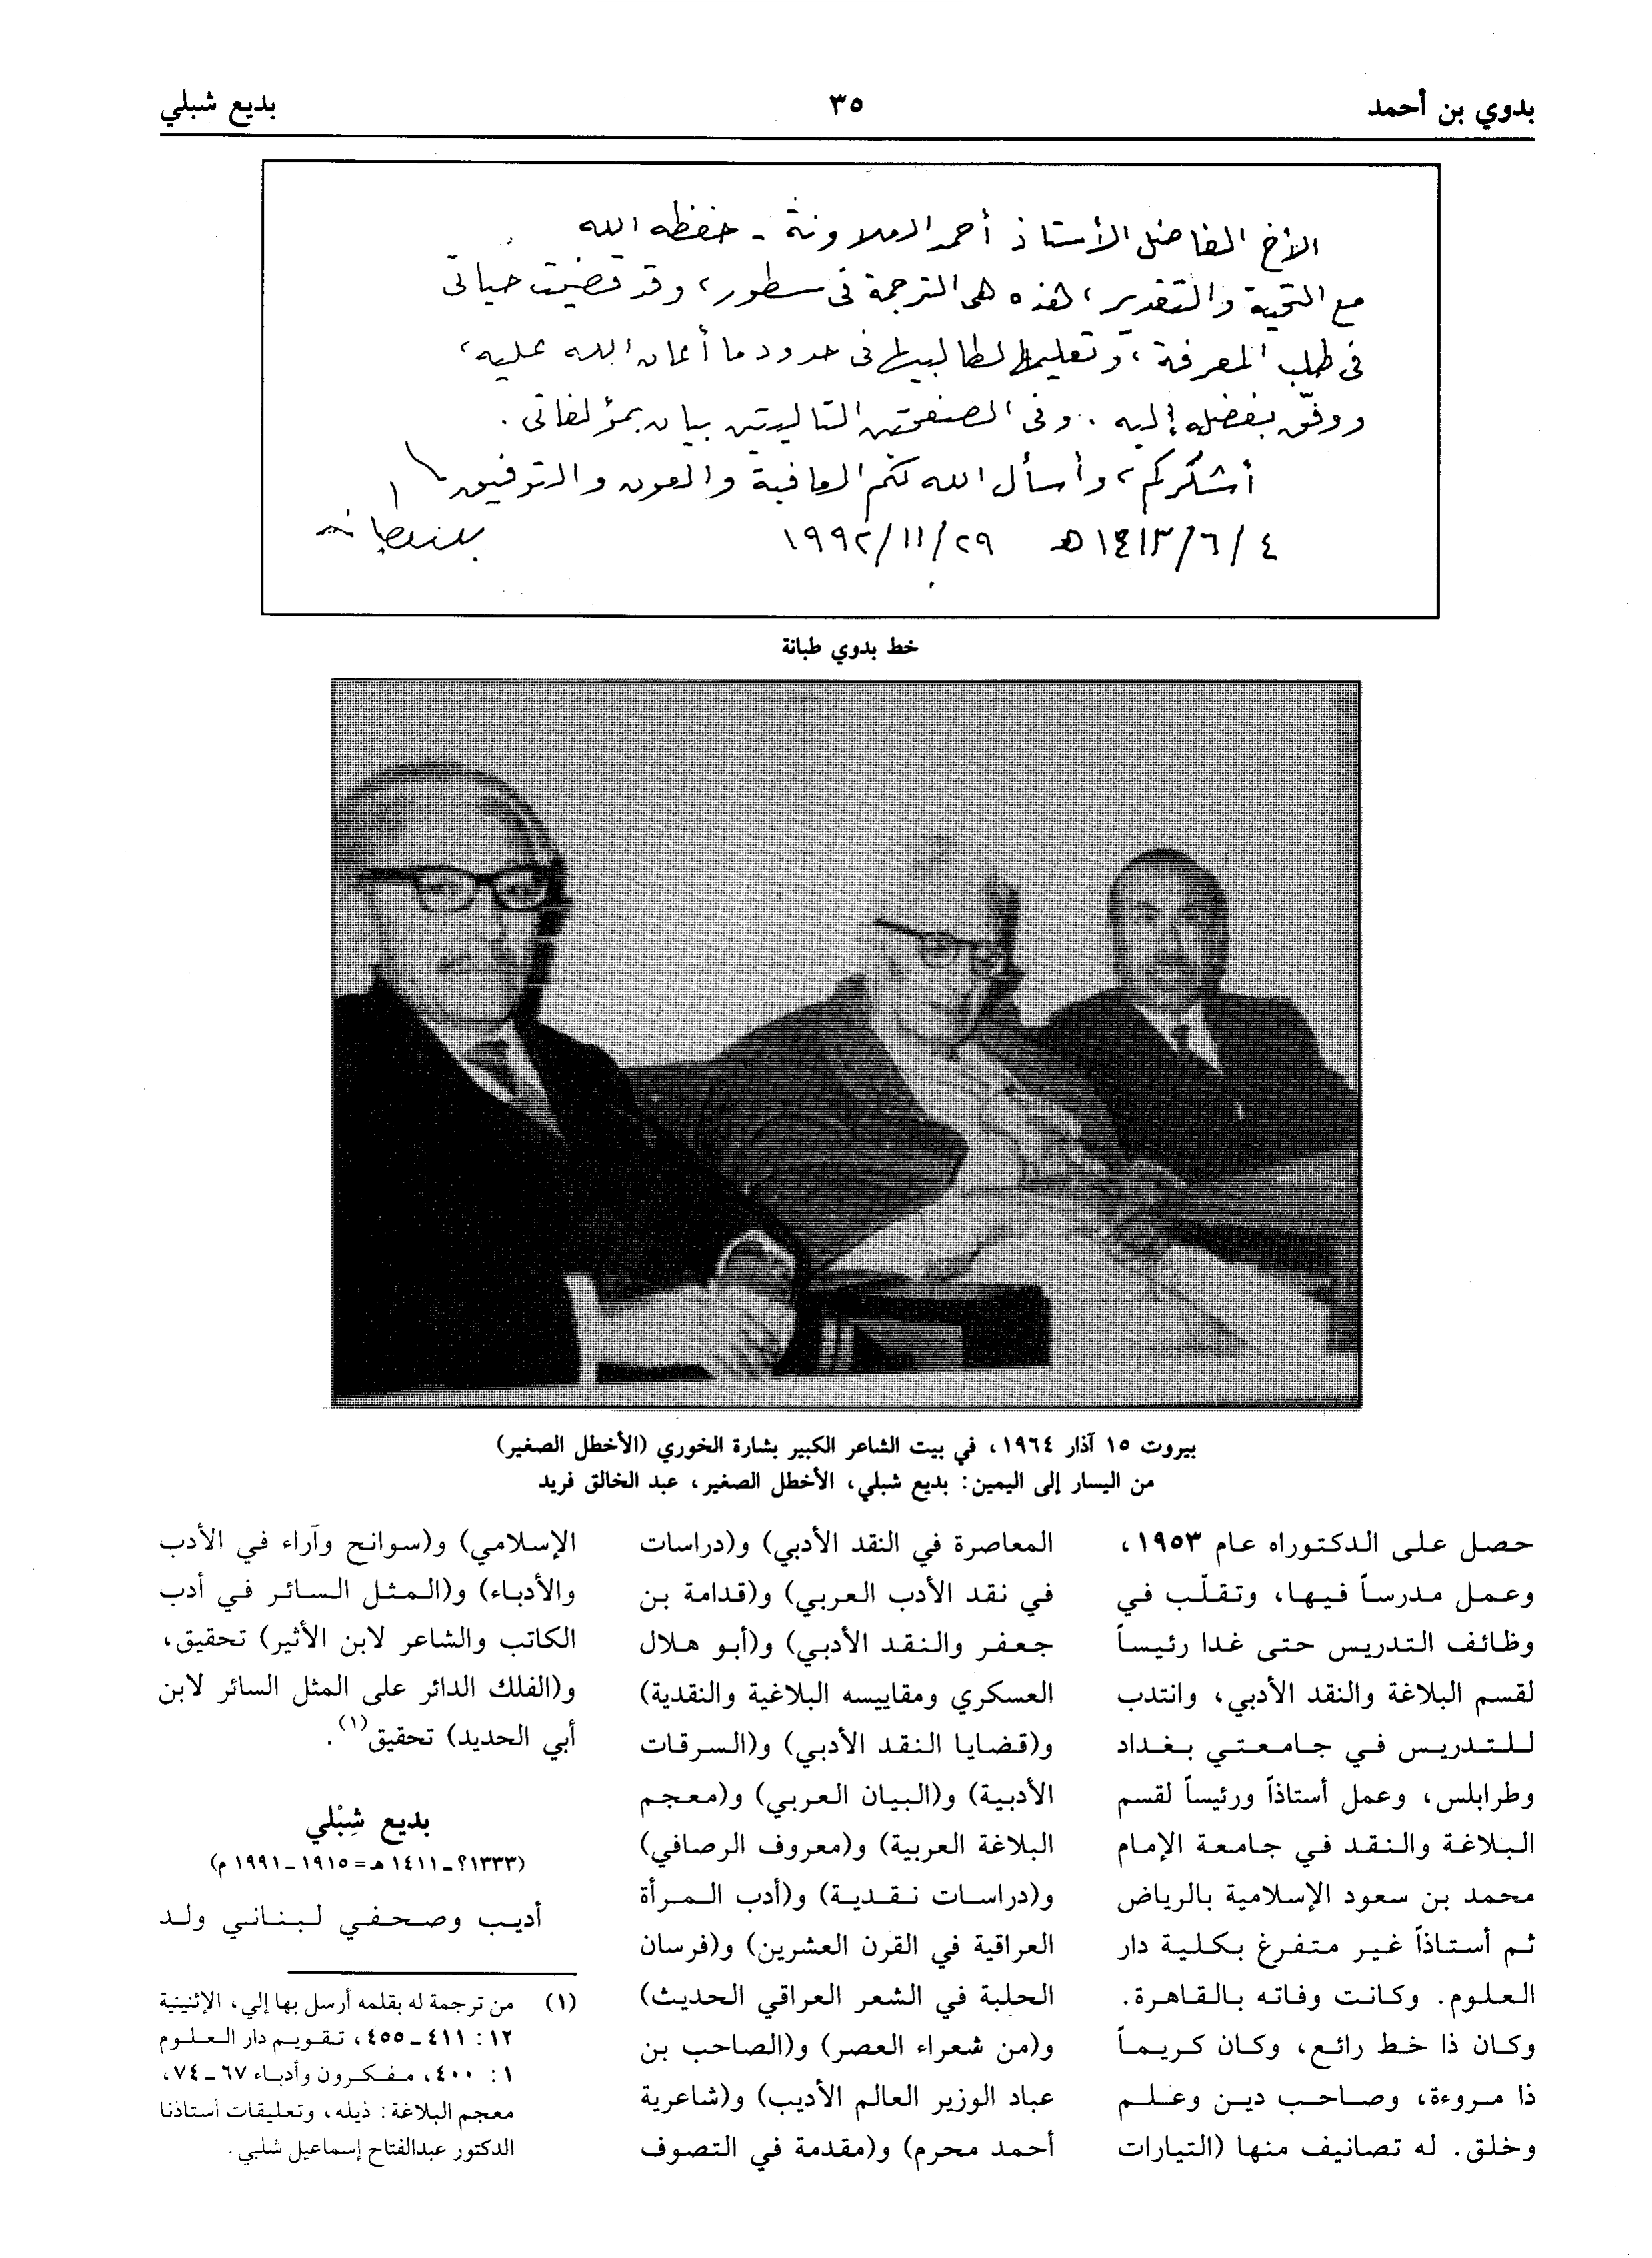 بدوي بن أحمد
٣٥
بديع شبلي
الأخ الفاضل الأستاذ أحمد العلاونة - حفظه الله
مع التحية والتقدير، هذه هى الترجمة فى سطور، وقد قضيت حياتى
فى طلب المعرفة، وتعليمها لطالبيها فى حدود ما أعان الله عليه،
ووفّق بفضله إليه. وفى الصفحتين التاليتين بيان بمؤلفاتى.
أشكركم، وأسأل الله لكم العافية والعون والتوفيق
٤/٦/١٤١٣هـ ٢٩/١١/١٩٩٢
خط بدوي طبانة
بيروت ١٥ آذار ١٩٦٤، في بيت الشاعر الكبير بشارة الخوري (الأخطل الصغير)
من اليسار إلى اليمين: بديع شبلي، الأخطل الصغير، عبد الخالق فريد
حصل على الدكتوراه عام ١٩٥٣،
وعمل مدرساً فيها، وتقلّب في
وظائف التدريس حتى غدا رئيساً
لقسم البلاغة والنقد الأدبي، وانتدب
للتدريس في جامعتي بغداد
وطرابلس، وعمل أستاذاً ورئيساً لقسم
البلاغة والنقد في جامعة الإمام
محمد بن سعود الإسلامية بالرياض
ثم أستاذاً غير متفرغ بكلية دار
العلوم. وكانت وفاته بالقاهرة.
وكان ذا خط رائع، وكان كريماً
ذا مروءة، وصاحب دين وعلم
وخلق. له تصانيف منها (التيارات
المعاصرة في النقد الأدبي) و(دراسات
في نقد الأدب العربي) و(قدامة بن
جعفر والنقد الأدبي) و(أبو هلال
العسكري ومقاييسه البلاغية والنقدية)
و(قضايا النقد الأدبي) و(السرقات
الأدبية) و(البيان العربي) و(معجم
البلاغة العربية) و(معروف الرصافي)
و(دراسات نقدية) و(أدب المرأة
العراقية في القرن العشرين) و(فرسان
الحلبة في الشعر العراقي الحديث)
و(من شعراء العصر) و(الصاحب بن
عباد الوزير العالم الأديب) و(شاعرية
أحمد محرم) و(مقدمة في التصوف
الإسلامي) و(سوانح وآراء في الأدب
والأدباء) و(المثل السائر في أدب
الكاتب والشاعر لابن الأثير) تحقيق،
و(الفلك الدائر على المثل السائر لابن
أبي الحديد) تحقيق(١).
بديع شِبْلي
(١٣٣٣؟ـ ١٤١١ هـ = ١٩١٥ ـ ١٩٩١ م)
أديب وصحفي لبناني ولد
(١) من ترجمة له بقلمه أرسل بها إلي، الإثنينية
١٢: ٤١١ ـ ٤٥٥، تقويم دار العلوم
١: ٤٠٠، مفكرون وأدباء ٦٧ ـ ٧٤،
معجم البلاغة: ذيله، وتعليقات أستاذنا
الدكتور عبدالفتاح إسماعيل شلبي.